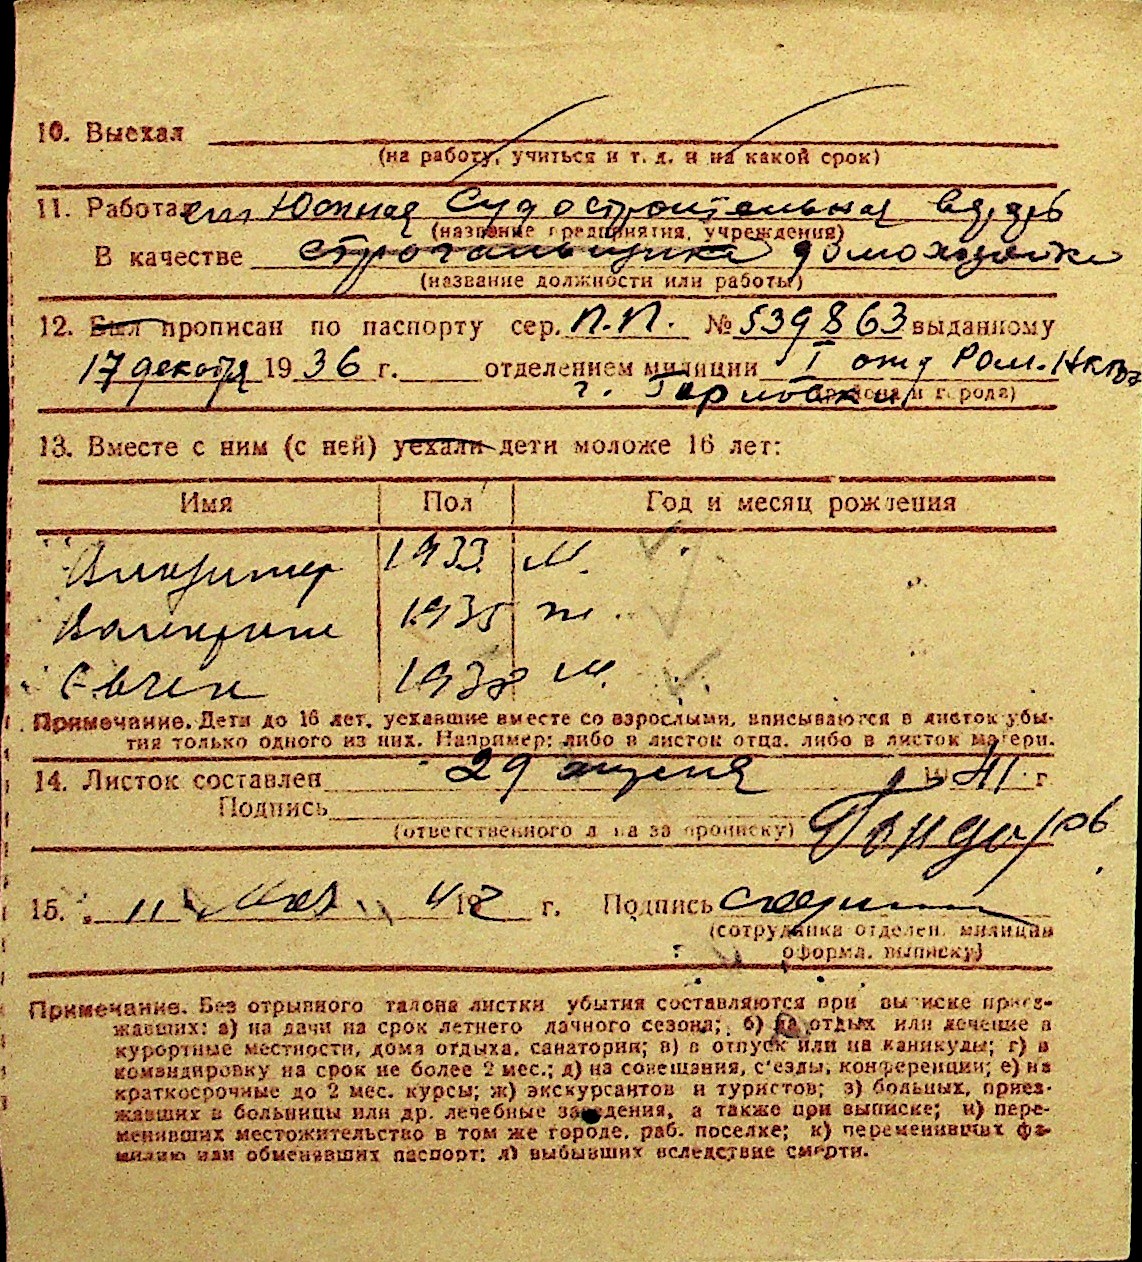 10. Выехал
(на работу, учиться и т. д. и на какой срок)
11. Работал ст. Южная Судостроительная
(название предприятия, учреждения)
В качестве строгальщика домохозяйка
(название должности или работы)
12. Был прописан по паспорту сер. П.П. № 539863 выданному
17 декабря 1936 г. отделением милиции I отд Ром. НКВД
г. Горловка (района и города)
13. Вместе с ним (с ней) уехали дети моложе 16 лет:
Имя Пол Год и месяц рождения
Владимер 1933 м.
Валентина 1935 ж
Евген 1938 м.
Примечание. Дети до 16 лет, уехавшие вместе со взрослыми, вписываются в листок убы-
тия только одного из них. Например: либо в листок отца, либо в листок матери.
14. Листок составлен 29 апреля 1941 г.
Подпись
(ответственного лица за прописку)
15. "11" Мая 1942 г. Подпись
(сотрудника отделен. милиции
оформ. выписку)
Примечание. Без отрывного талона листки убытия составляются при выписке приез-
жавших: а) на дачи на срок летнего дачного сезона; б) на отдых или лечение в
курортные местности, дома отдыха, санатории; в) в отпуск или на каникулы; г) в
командировку на срок не более 2 мес.; д) на совещания, с'езды, конференции; е) на
краткосрочные до 2 мес. курсы; ж) экскурсантов и туристов; з) больных, приез-
жавших в больницы или др. лечебные заведения, а также при выписке; и) пере-
менивших местожительство в том же городе, раб. поселке; к) переменивших фа-
милию или обменявших паспорт; л) выбывших вследствие смерти.